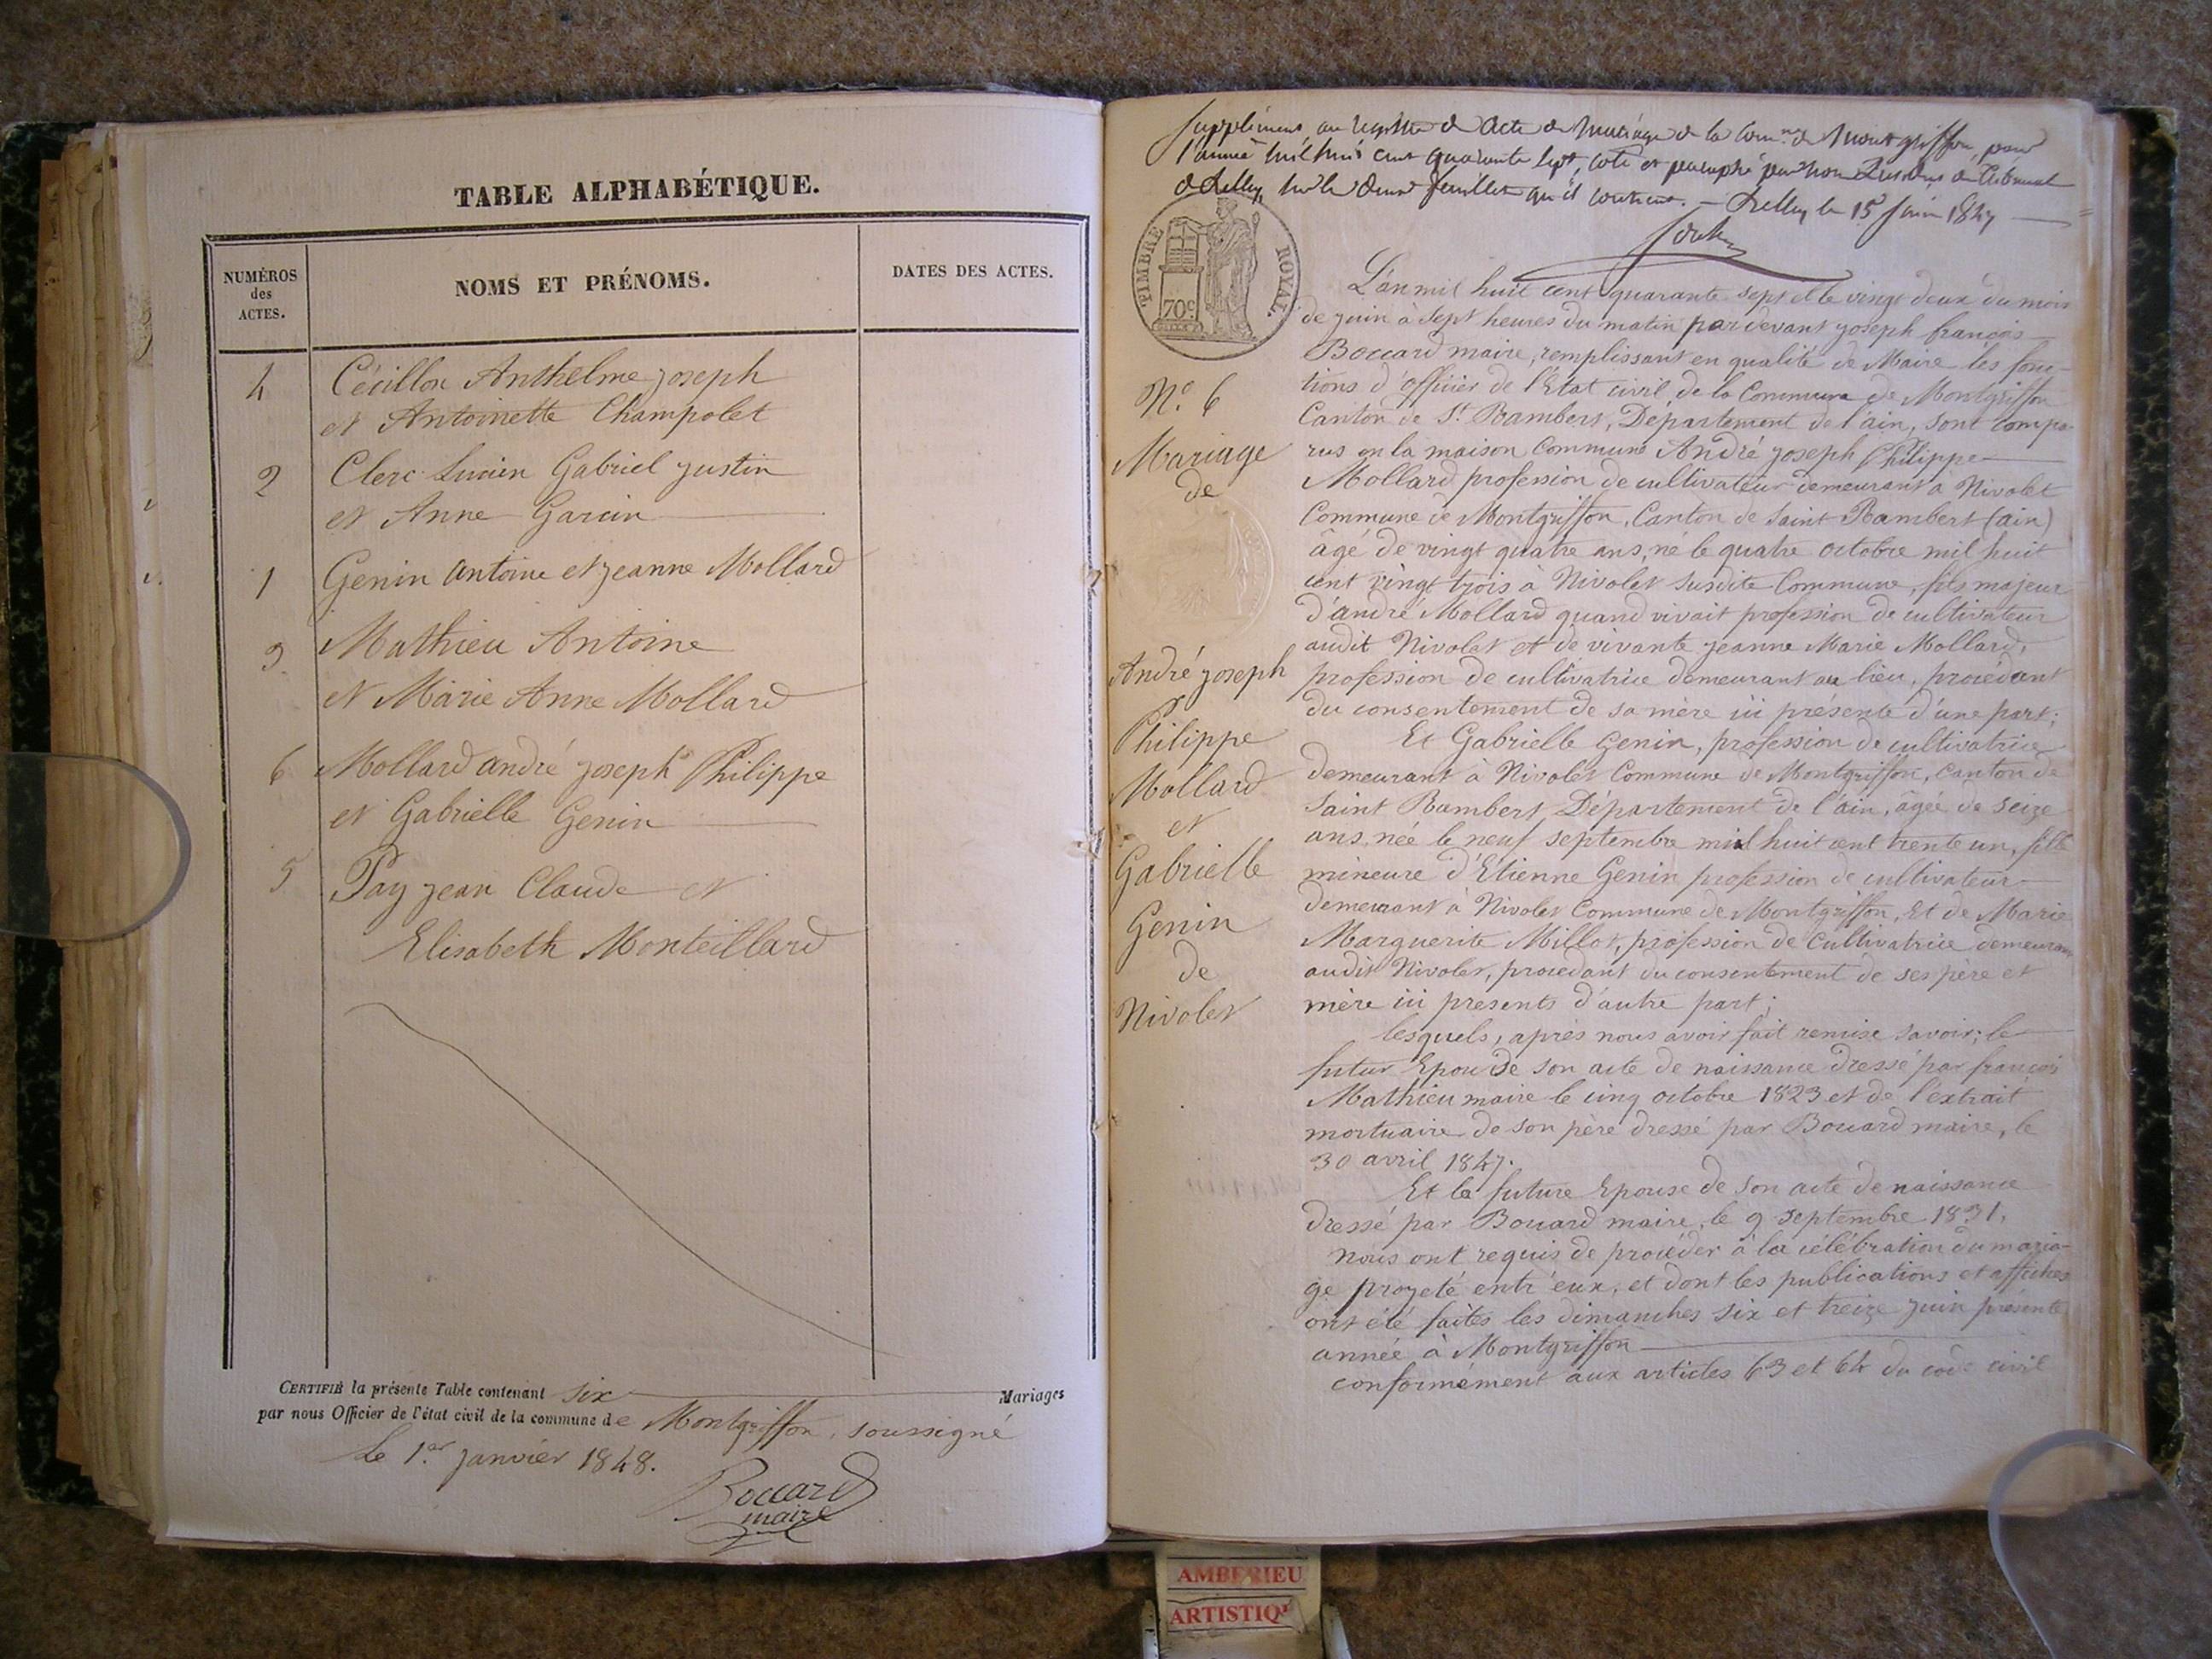 TABLE ALPHABÉTIQUE.
NUMÉROS
des
ACTES.
NOMS ET PRÉNOMS.
DATES DES ACTES.
4 Cécillon Anthelme joseph
et Antoinette Champolet
2 Clerc Lucien Gabriel justin
et Anne Garcin
1 Genin antoine et jeanne Mollard
3 Mathieu Antoine
et Marie Anne Mollard
6 Mollard andré joseph Philippe
et Gabrielle Genin
5 Pay jean Claude et
Elisabeth Monteillard
CERTIFIÉ la présente Table contenant six Mariages
par nous Officier de l'état civil de la commune de Montgriffon, soussigné
Le 1er janvier 1848.
Boccard
maire
Supplément au registre de acte de Mariage de la Comne de Montgriffon pour
l'année mil huit cent quarante sept, coté et paraphé par nous Président du Tribunal
de Belley, sur les deux feuillets qu'il contient. — Belley le 15 juin 1847
TIMBRE ROYAL.
70c
L'an mil huit cent quarante sept et le vingt deux du mois
de juin à sept heures du matin pardevant joseph françois
Boccard maire, remplissant en qualité de Maire les fonc-
tions d'officier de l'Etat civil de la Commune de Montgriffon
Canton de St Rambert, Département de l'ain, sont compa-
rus en la maison Commune André joseph Philippe
Mollard profession de cultivateur demeurant a Nivolet
Commune de Montgriffon, Canton de Saint Rambert (ain)
âgé de vingt quatre ans, né le quatre octobre mil huit
cent vingt trois à Nivolet susdite Commune, fils majeur
d'andré Mollard quand vivait profession de cultivateur
audit Nivolet et de vivante jeanne Marie Mollard,
profession de cultivatrice demeurant au lieu, procédant
du consentement de sa mère ici présente d'une part;
Et Gabrielle Genin, profession de cultivatrice
demeurant à Nivolet Commune de Montgriffon, canton de
Saint Rambert Département de l'ain, âgée de seize
ans, née le neuf septembre mil huit cent trente un, fille
mineure d'Etienne Genin profession de cultivateur
demeurant à Nivolet Commune de Montgriffon, Et de Marie
Marguerite Millot, profession de Cultivatrice demeurant
audit Nivolet, procedant du consentement de ses père et
mère ici presents d'autre part;
lesquels, après nous avoir fait remise savoir; le
futur Epou de son acte de naissance dressé par françois
Mathieu maire le cinq octobre 1823 et de l'extrait
mortuaire de son père dressé par Boccard maire, le
30 avril 1847.
Et la future Epouse de son acte de naissance
dressé par Boccard maire, le 9 septembre 1831,
nous ont requis de procéder à la célébration du maria-
ge proyeté entr'eux, et dont les publications et affiches
ont été faites les dimanches six et treize juin présente
année à Montgriffon
conformément aux articles 63 et 64 du code civil
No 6
Mariage
de
André joseph
Philippe
Mollard
et
Gabrielle
Genin
de
Nivolet
AMBERIEU
ARTISTIQ